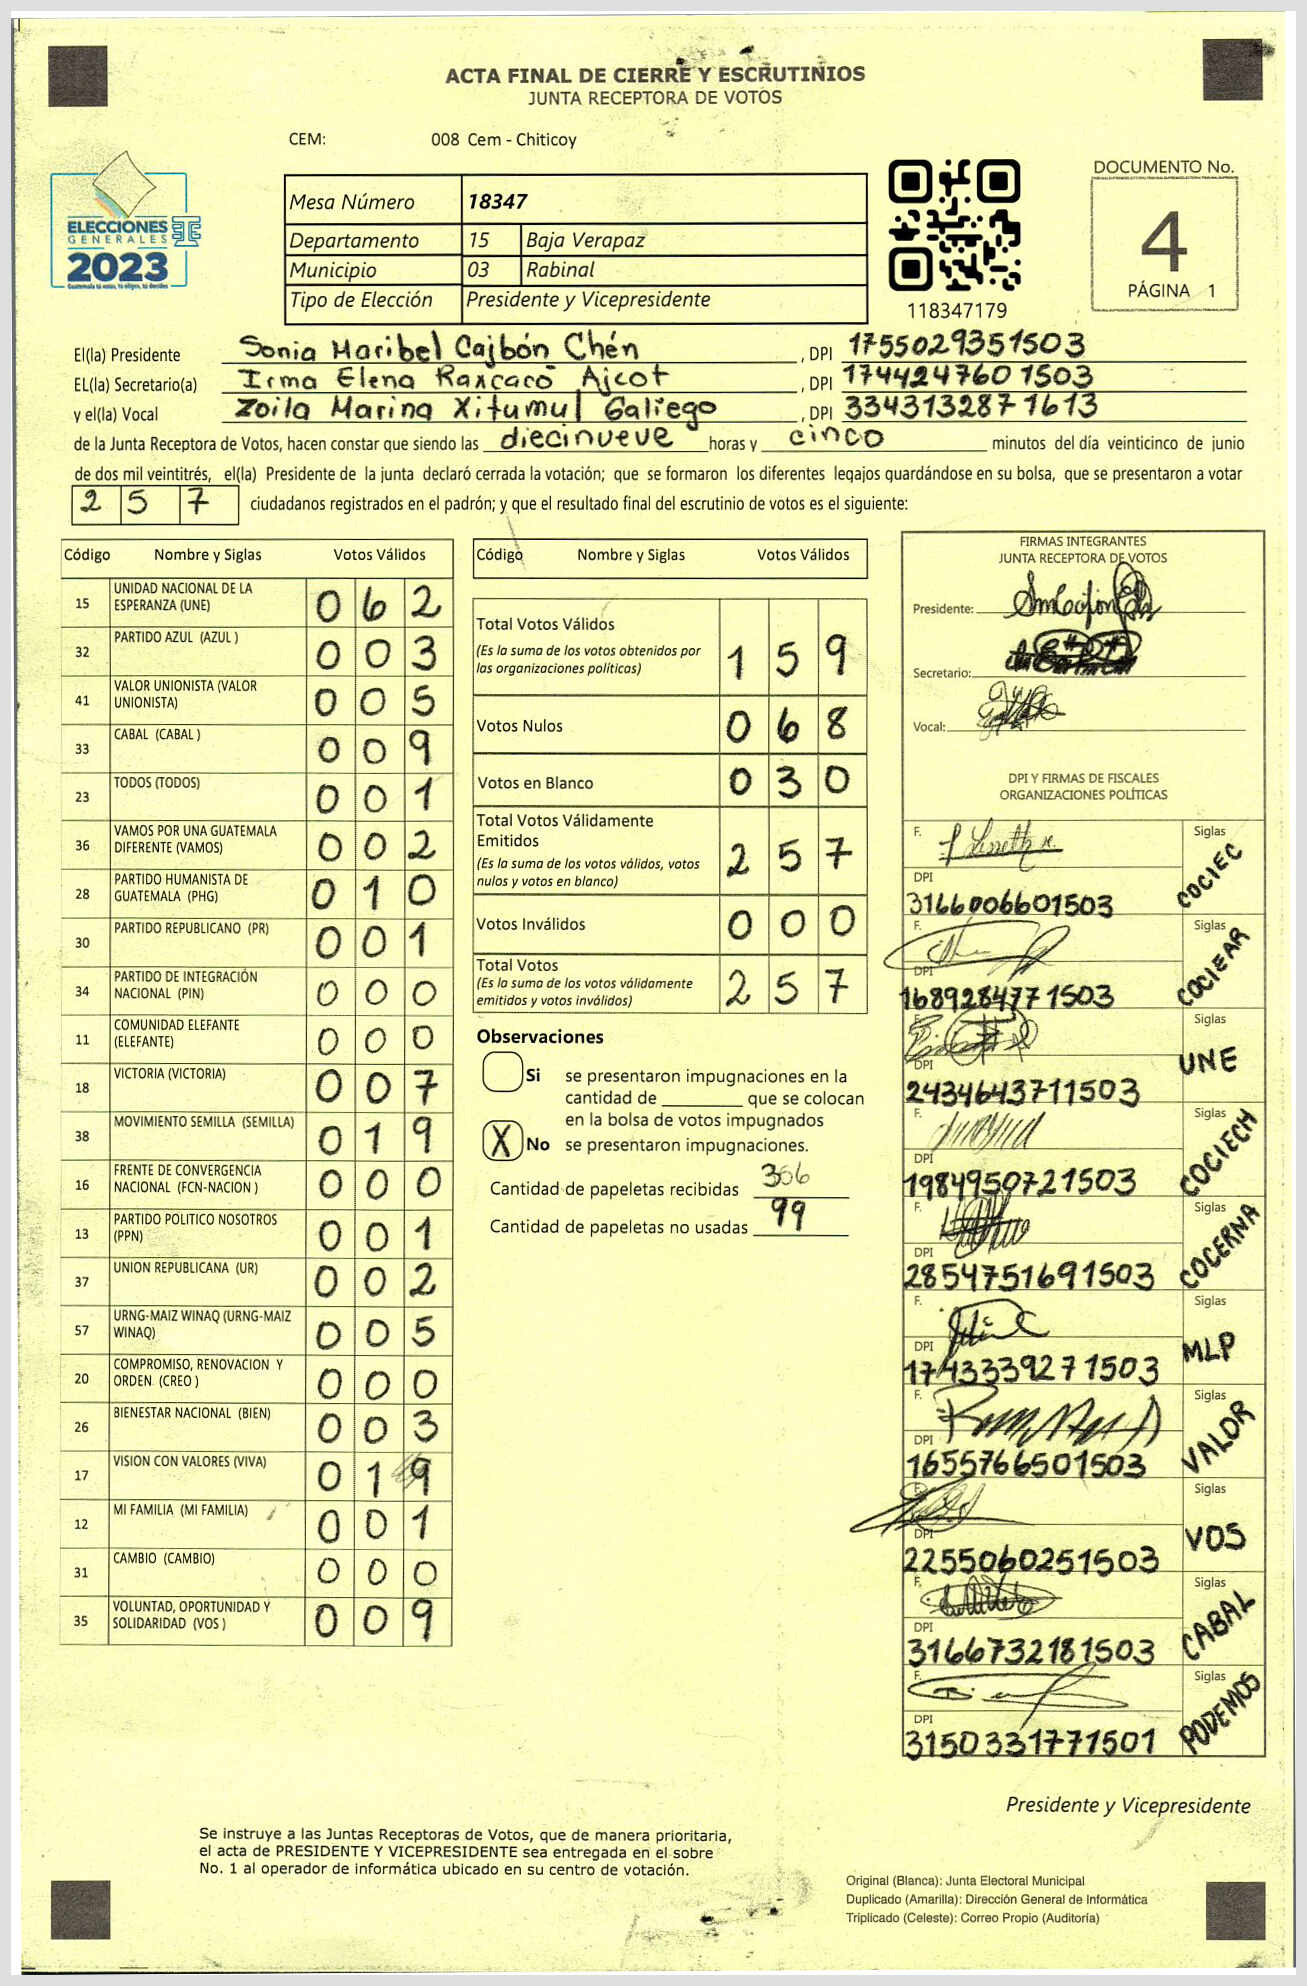 ACTA FINAL DE CIERRE Y ESCRUTINIOS
JUNTA RECEPTORA DE VOTOS
CEM: 008 Cem - Chiticoy
ELECCIONES
GENERALES
2023
Guatemala tú votas, tú eliges, tú decides
Mesa Número 18347
Departamento 15 Baja Verapaz
Municipio 03 Rabinal
Tipo de Elección Presidente y Vicepresidente
118347179
DOCUMENTO No.
4
PÁGINA 1
El(la) Presidente Sonia Maribel Cajbón Chén , DPI 1755029351503
EL(la) Secretario(a) Irma Elena Raxcacó Ajcot , DPI 1744247601503
y el(la) Vocal Zoila Marina Xitumul Galiego , DPI 3343132871613
de la Junta Receptora de Votos, hacen constar que siendo las diecinueve horas y cinco minutos del día veinticinco de junio
de dos mil veintitrés, el(la) Presidente de la junta declaró cerrada la votación; que se formaron los diferentes legajos guardándose en su bolsa, que se presentaron a votar
2 5 7 ciudadanos registrados en el padrón; y que el resultado final del escrutinio de votos es el siguiente:
Código Nombre y Siglas Votos Válidos
15 UNIDAD NACIONAL DE LA ESPERANZA (UNE) 0 6 2
32 PARTIDO AZUL (AZUL ) 0 0 3
41 VALOR UNIONISTA (VALOR UNIONISTA) 0 0 5
33 CABAL (CABAL ) 0 0 9
23 TODOS (TODOS) 0 0 1
36 VAMOS POR UNA GUATEMALA DIFERENTE (VAMOS) 0 0 2
28 PARTIDO HUMANISTA DE GUATEMALA (PHG) 0 1 0
30 PARTIDO REPUBLICANO (PR) 0 0 1
34 PARTIDO DE INTEGRACIÓN NACIONAL (PIN) 0 0 0
11 COMUNIDAD ELEFANTE (ELEFANTE) 0 0 0
18 VICTORIA (VICTORIA) 0 0 7
38 MOVIMIENTO SEMILLA (SEMILLA) 0 1 9
16 FRENTE DE CONVERGENCIA NACIONAL (FCN-NACION ) 0 0 0
13 PARTIDO POLITICO NOSOTROS (PPN) 0 0 1
37 UNION REPUBLICANA (UR) 0 0 2
57 URNG-MAIZ WINAQ (URNG-MAIZ WINAQ) 0 0 5
20 COMPROMISO, RENOVACION Y ORDEN (CREO ) 0 0 0
26 BIENESTAR NACIONAL (BIEN) 0 0 3
17 VISION CON VALORES (VIVA) 0 1 9
12 MI FAMILIA (MI FAMILIA) 0 0 1
31 CAMBIO (CAMBIO) 0 0 0
35 VOLUNTAD, OPORTUNIDAD Y SOLIDARIDAD (VOS ) 0 0 9
Código Nombre y Siglas Votos Válidos
Total Votos Válidos
(Es la suma de los votos obtenidos por
las organizaciones políticas) 1 5 9
Votos Nulos 0 6 8
Votos en Blanco 0 3 0
Total Votos Válidamente
Emitidos
(Es la suma de los votos válidos, votos
nulos y votos en blanco) 2 5 7
Votos Inválidos 0 0 0
Total Votos
(Es la suma de los votos válidamente
emitidos y votos inválidos) 2 5 7
Observaciones
Si se presentaron impugnaciones en la
cantidad de ________ que se colocan
en la bolsa de votos impugnados
X No se presentaron impugnaciones.
Cantidad de papeletas recibidas
Cantidad de papeletas no usadas 99
FIRMAS INTEGRANTES
JUNTA RECEPTORA DE VOTOS
Presidente:
Secretario:
Vocal:
DPI Y FIRMAS DE FISCALES
ORGANIZACIONES POLÍTICAS
F. Siglas COCIEC
DPI 3166006601503
F. Siglas COCIEAR
DPI 1689284771503
F. Siglas UNE
DPI 2434643711503
F. Siglas COCIECH
DPI 1984950721503
F. Siglas COCERNA
DPI 2854751691503
F. Siglas MLP
DPI 1743339271503
F. Siglas VALOR
DPI 1655766501503
F. Siglas VOS
DPI 2255060251503
F. Siglas CABAL
DPI 3166732181503
F. Siglas PODEMOS
DPI 3150331771501
Presidente y Vicepresidente
Se instruye a las Juntas Receptoras de Votos, que de manera prioritaria,
el acta de PRESIDENTE Y VICEPRESIDENTE sea entregada en el sobre
No. 1 al operador de informática ubicado en su centro de votación.
Original (Blanca): Junta Electoral Municipal
Duplicado (Amarilla): Dirección General de Informática
Triplicado (Celeste): Correo Propio (Auditoría)